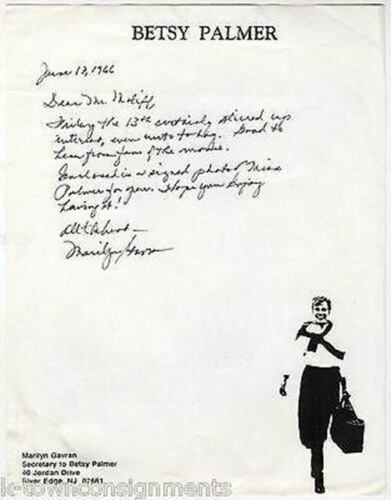 BETSY PALMER
June 13, 1986
Dear Mr. Motiff,
Friday the 13th certainly stirred up
interest, even unto today. Good to
hear from fans of the movie.
Enclosed is a signed photo of Miss
Palmer for you. Hope you enjoy
having it!
All the best –
Marilyn Gavran
Marilyn Gavran
Secretary to Betsy Palmer
40 Jordan Drive
River Edge, NJ 07661
k-townconsignments